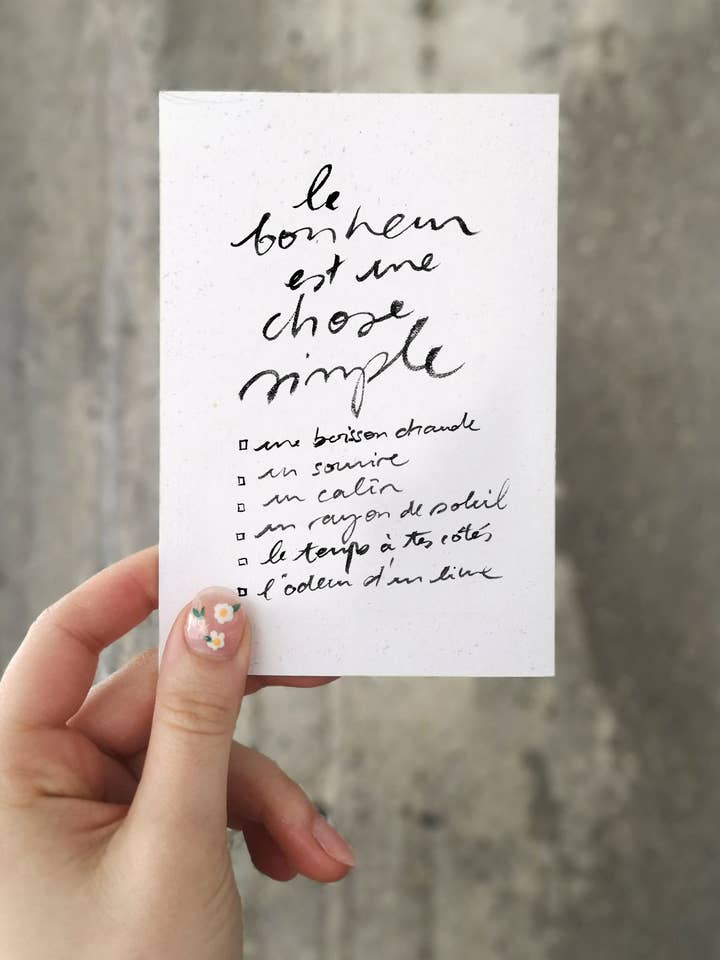 le
bonheur
est une
chose
simple
une boisson chaude
un sourire
un calin
un rayon de soleil
le temps à tes côtés
l'odeur d'un livre